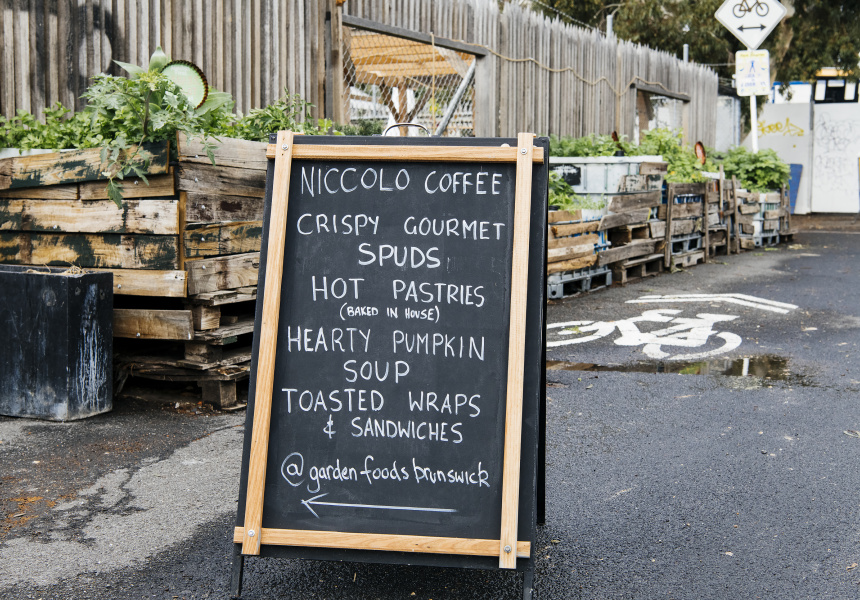 NICCOLO COFFEE
CRISPY GOURMET
SPUDS
HOT PASTRIES
(BAKED IN HOUSE)
HEARTY PUMPKIN
SOUP
TOASTED WRAPS
& SANDWICHES
@gardenfoodsbrunswick